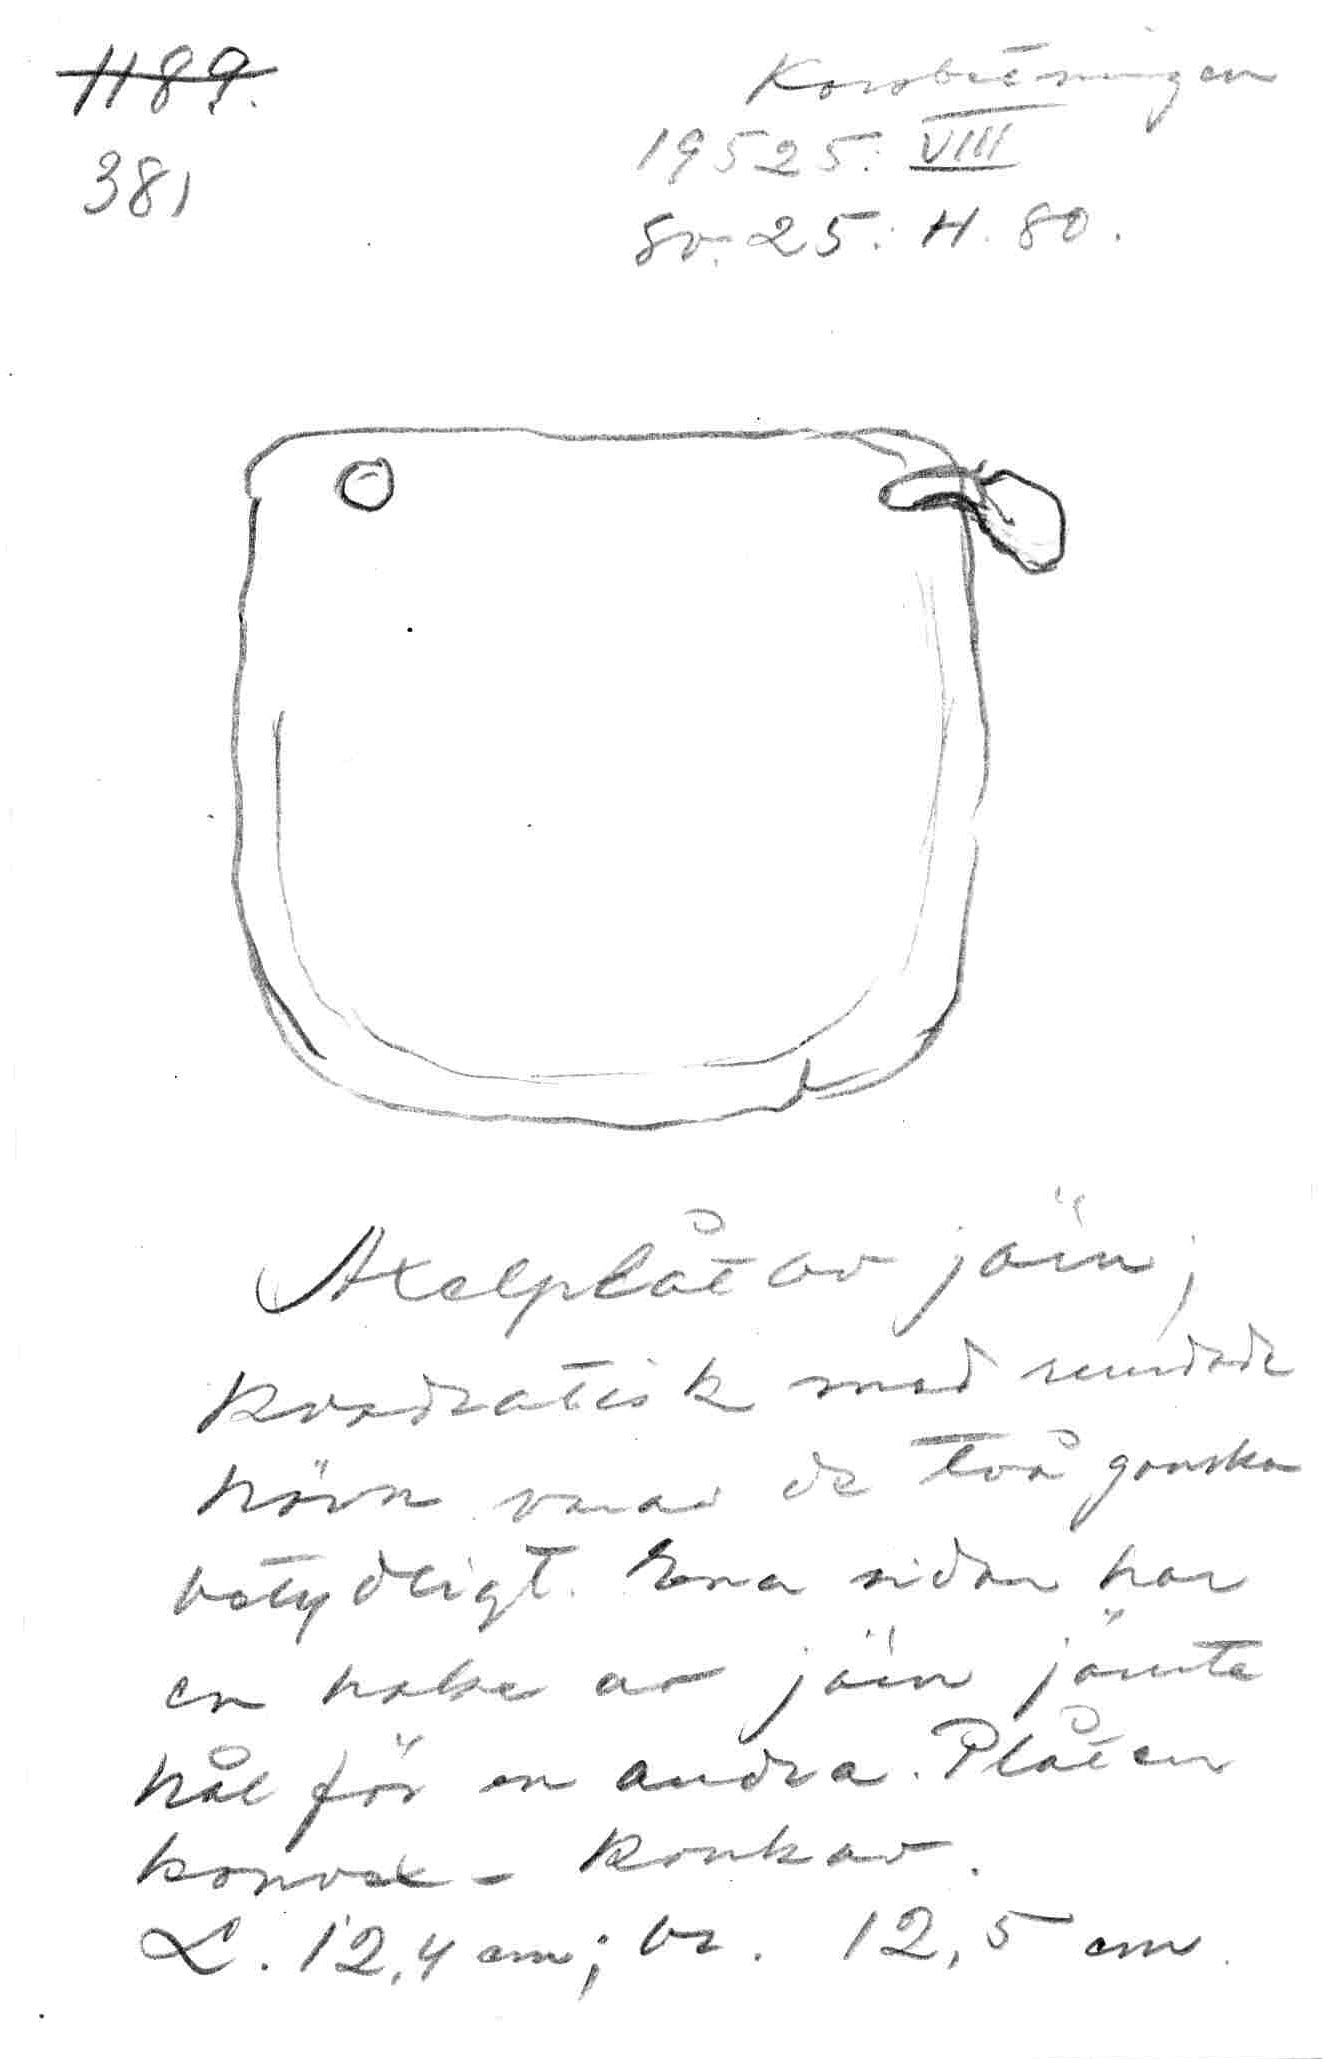 1189.
381
Korsbetningen
19525: VIII
Sv. 25: H. 80.
Axelplåt av järn;
kvadratisk med rundade
hörn varav de två ganska
betydligt. Ena sidan har
en hake av järn jämte
hål för en andra. Plåten
konvex - konkav.
L. 12,4 cm; br. 12,5 cm.